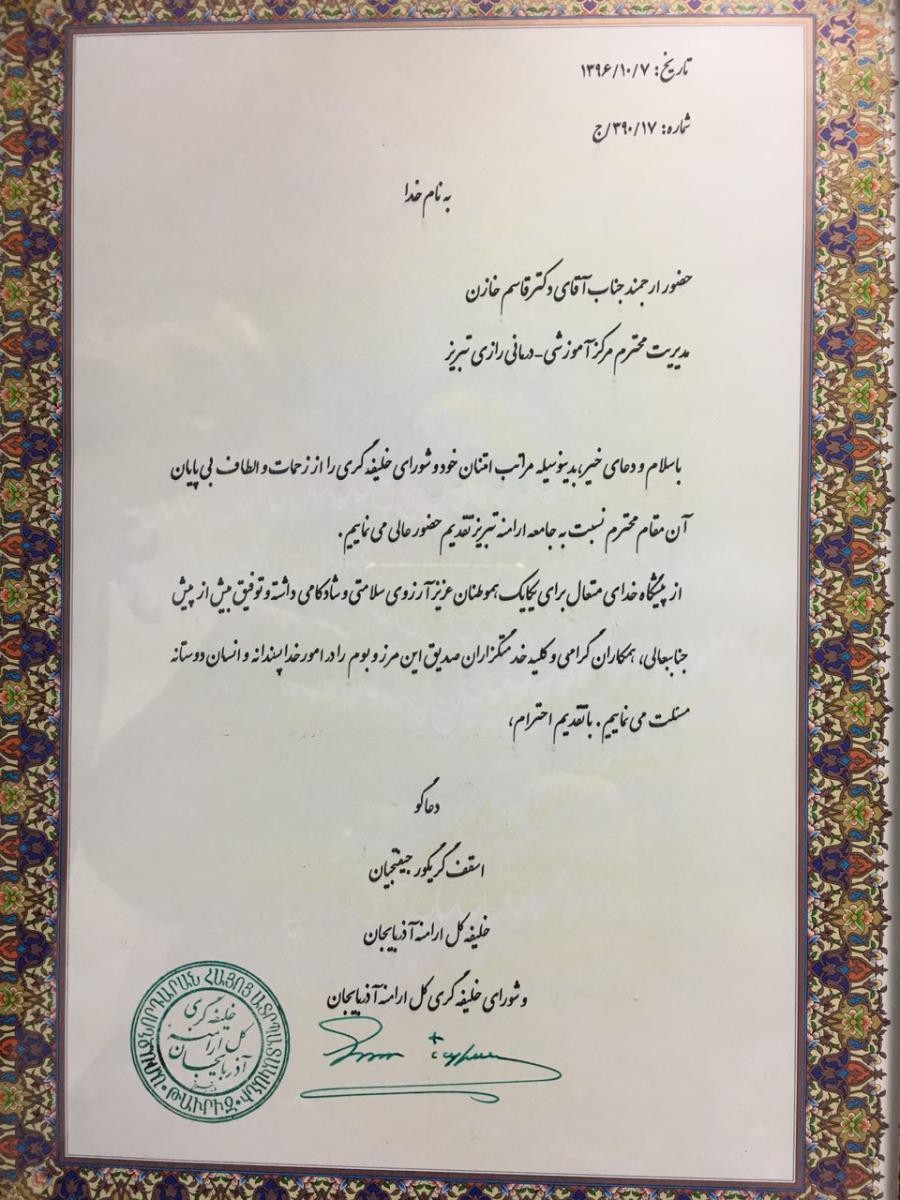 تاریخ: ۱۳۹۶/۱۰/۷
شماره: ۳۹۰/۱۷/ج
به نام خدا
حضور ارجمند جناب آقای دکتر قاسم خازن
مدیریت محترم مرکز آموزشی-درمانی رازی تبریز
با سلام و دعای خیر، بدینوسیله مراتب امتنان خود و شورای خلیفه گری را از زحمات و الطاف بی پایان
آن مقام محترم نسبت به جامعه ارامنه تبریز تقدیم حضور عالی می نماییم.
از پیشگاه خدای متعال برای یکایک هموطنان عزیز آرزوی سلامتی و شادکامی داشته و توفیق بیش از پیش
جنابعالی، همکاران گرامی و کلیه خدمتگزاران صدیق این مرز و بوم را در امور خداپسندانه و انسان دوستانه
مسئلت می نماییم. با تقدیم احترام،
دعاگو
اسقف گریگور چیفتجیان
خلیفه کل ارامنه آذربایجان
و شورای خلیفه گری کل ارامنه آذربایجان
ԱՌԱՋՆՈՐԴԱՐԱՆ ՀԱՅՈՑ ԱՏՐՊԱՏԱԿԱՆԻ
ԹԱՒՐԻԶ
خلیفه گری
کل ارامنه
آذربایجان